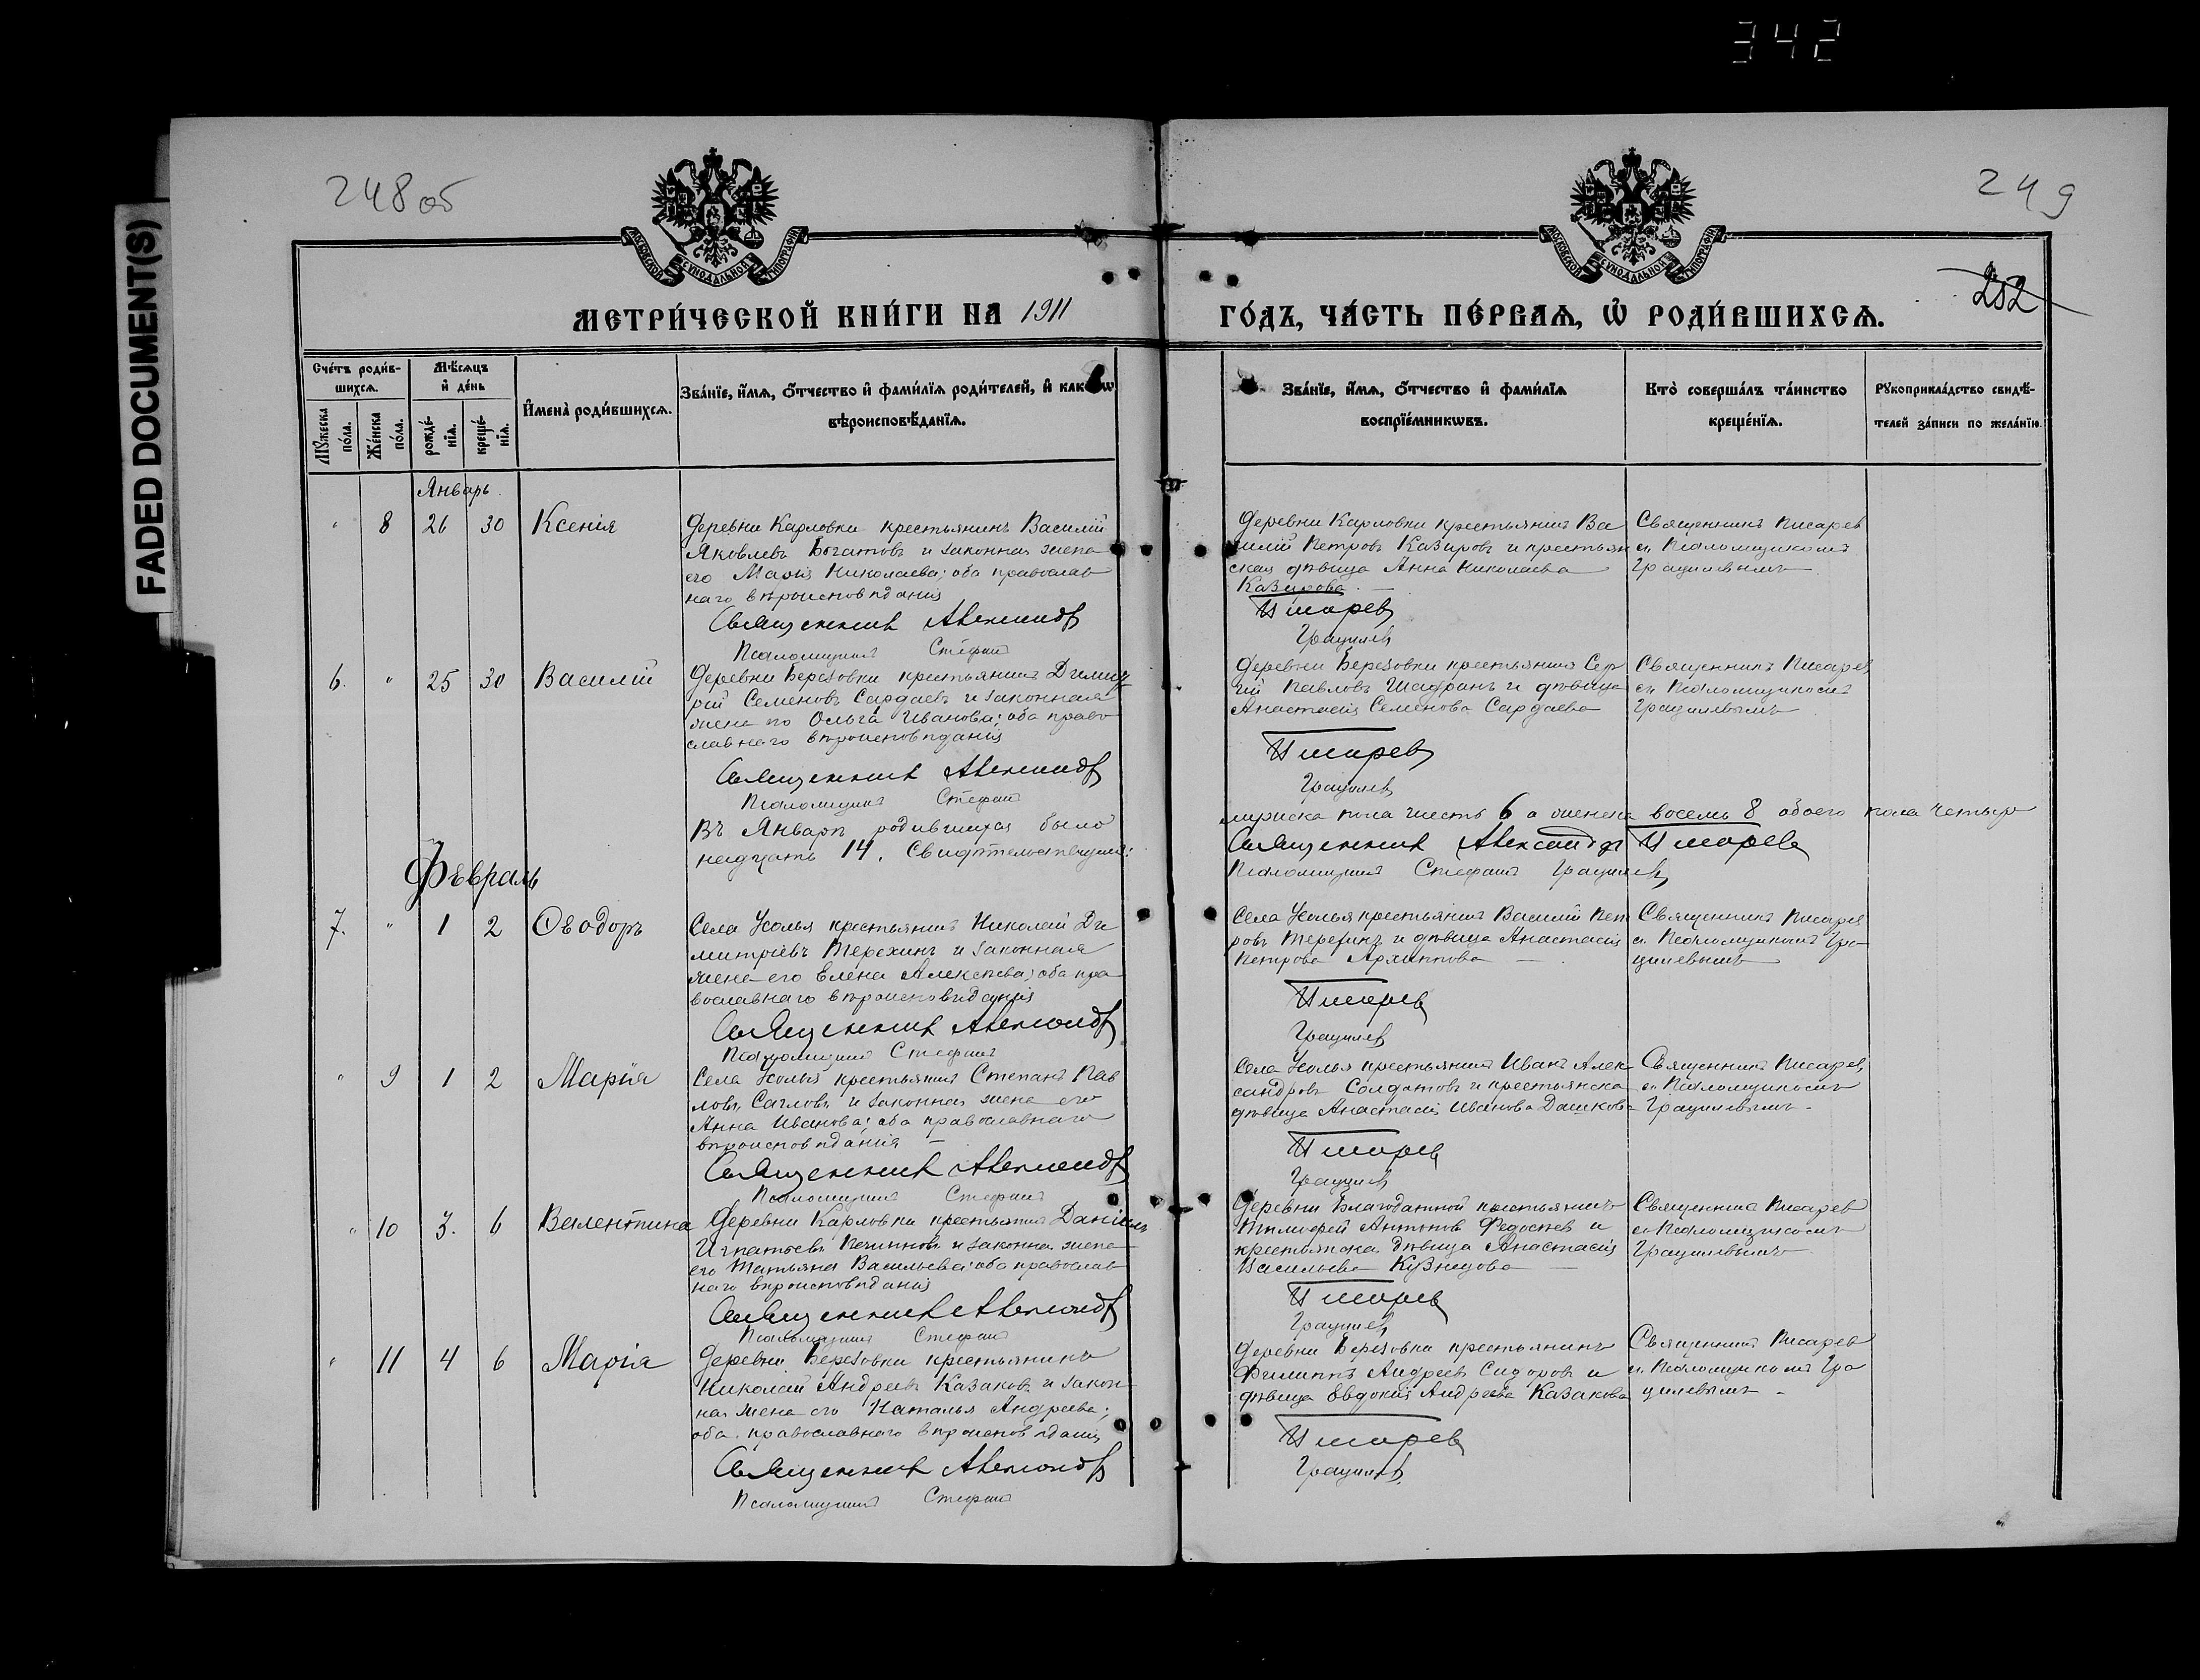 342
FADED DOCUMENT(S)
248 об
249
252
МОСКОВСКОЙ СѴНОДАЛЬНОЙ ТИПОГРАФІИ
МОСКОВСКОЙ СѴНОДАЛЬНОЙ ТИПОГРАФІИ
МЕТРИ́ЧЕСКОЙ КНИ́ГИ НА 1911
ГО́ДЪ, ЧА́СТЬ ПЕ́РВАѦ, Ѽ РОДИ́ВШИХСѦ.
Сче́тъ роди́в-
шихсѧ.
Мꙋ́жеска по́ла.
Же́нска по́ла.
Мѣ́сѧцъ
и҆ де́нь
рожде́-
нїѧ.
креще́-
нїѧ.
И҆мена̀ роди́вшихсѧ.
Зва́нїе, и҆́мѧ, ѻ҆́тчество и҆ фами́лїѧ роди́телей, и҆ како́гѡ
вѣроисповѣ́данїѧ.
Зва́нїе, и҆́мѧ, ѻ҆́тчество и҆ фами́лїѧ
воспрїе́мникѡвъ.
Кто̀ соверша́лъ та́инство
креще́нїѧ.
Рꙋкоприкла́дство свидѣ́-
телей за́писи по жела́нїю.
Январь.
" 8 26 30 Ксенія
Деревни Карловки крестьянинъ Василій
Яковлевъ Богатовъ и законная жена
его Марія Николаева; оба православ
наго вѣроисповѣданія
Священник Александр
Псаломщикъ Стефанъ
Деревни Карловки крестьянинъ Ва
силій Петровъ Казировъ и крестьян
ская дѣвица Анна Николаева
Казирова.
Писарев
Грацилевъ
Священникъ Писаревъ
съ Псаломщикомъ
Грацилевымъ
6. " 25 30 Василій
Деревни Березовки крестьянинъ Димит
рій Семеновъ Сардаевъ и законная
жена его Ольга Иванова; оба право
славнаго вѣроисповѣданія
Священник Александр
Псаломщикъ Стефанъ
Деревни Березовки крестьянинъ Сер
гій Павловъ Шадринъ и дѣвица
Анастасія Семенова Сардаева
Писарев
Грацилевъ
Священникъ Писаревъ
съ Псаломщикомъ
Грацилевымъ
Въ Январѣ родившихся было
мужеска пола шесть 6 а женска восемь 8 обоего пола четыр
надцать 14. Свидѣтельствуемъ:
Священник Александр Писарев
Псаломщикъ Стефанъ Грацилевъ
Февраль
7. " 1 2 Ѳеодоръ
Села Усолья крестьянинъ Николай Ди
митріевъ Терехинъ и законная
жена его Елена Алексѣева; оба пра
вославнаго вѣроисповѣданія
Священник Александр
Псаломщикъ Стефанъ
Села Усолья крестьянинъ Василій Пет
ровъ и дѣвица Анастасія
Петрова Архиппова
Писарев
Грацилевъ
Священникъ Писаревъ
съ Псаломщикомъ Гра
цилевымъ
" 9 1 2 Марія
Села Усолья крестьянинъ Степанъ Пав
ловъ и законная жена его
Анна Иванова; оба православнаго
вѣроисповѣданія
Священник Александр
Псаломщикъ Стефанъ
Села Усолья крестьянинъ Иванъ Алек
сандровъ Солдатовъ и крестьянска
дѣвица Анастасія Иванова Дашкова
Писарев
Грацилевъ
Священникъ Писаревъ
съ Псаломщикомъ
Грацилевымъ
" 10 3. 6 Валентина
Деревни Карловки крестьянинъ Даніилъ
Игнатьевъ и законна жена
его Татьяна Васильева; оба православ
наго вѣроисповѣданія
Священник Александр
Псаломщикъ Стефанъ
Деревни Благодатной крестьянинъ
Тимофей Антоновъ Федосѣевъ и
крестьянска дѣвица Анастасія
Васильева Кузнецова
Писарев
Грацилевъ
Священникъ Писаревъ
съ Псаломщикомъ
Грацилевымъ
" 11 4 6 Марія
Деревни Березовки крестьянинъ
Николай Андреевъ Казаковъ и закон
ная жена его Наталья Андреева;
оба православнаго вѣроисповѣданія
Священник Александр
Псаломщикъ Стефанъ
Деревни Березовки крестьянинъ
Филиппъ Андреевъ Сидоровъ и
дѣвица Евдокія Андреева Казакова
Писарев
Грацилевъ
Священникъ Писаревъ
съ Псаломщикомъ Гра
цилевымъ